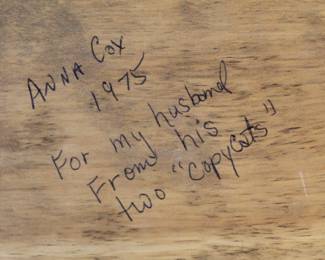 ANNA Cox
1975
For my husband
From his
two "Copycats"